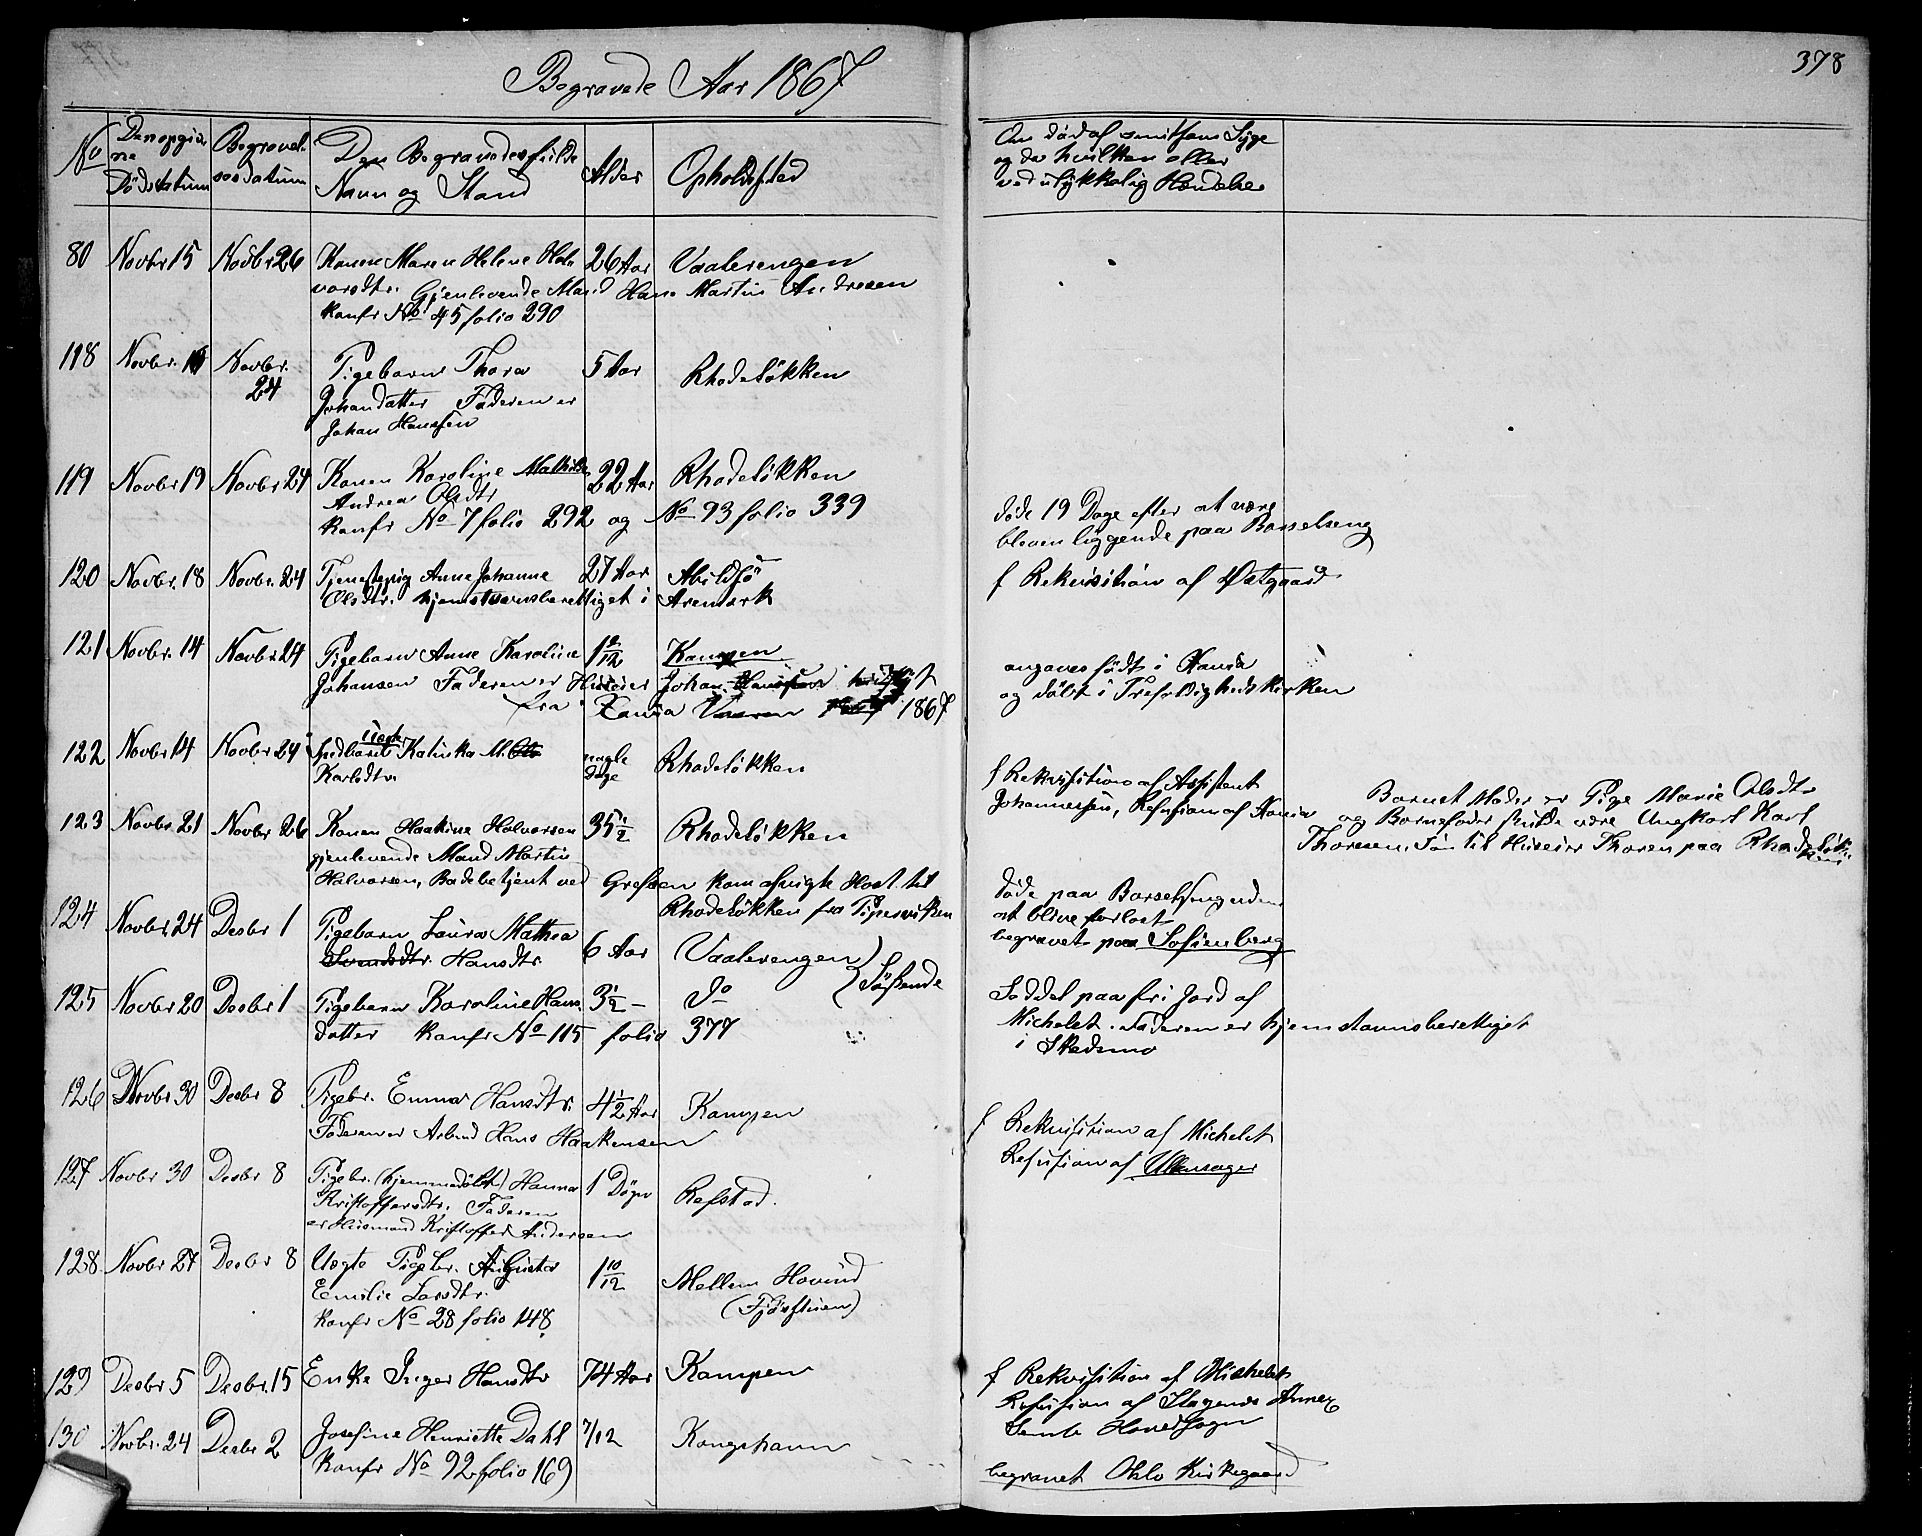 378
Begravede Aar 1867
No
Den opgivne Dødsdatum
Begravelsesdatum
Den Begravedes fulde Navn og Stand
Alder
Opholdssted
Om død af smitsom Syge
og da hvilken eller
ved ulykkelig Hændelse
80 Novbr 15 Novbr 26 Konen Maren Helene Hal 26 Aar Vaalerengen
vorsdtr. Gjenlevende Mand Hans Martin Andresen
konfr No 45 folio 290
118 Novbr. 16 Novbr. 24 Pigebarn Thora 5 Aar Rhodeløkken
Johandatter Faderen er
Johan Hanssen
119 Novbr 19 Novbr 24 Konen Karoline Mathilde 22 Aar Rhodeløkken
Andrea Olsdtr
konfr No 7 folio 292 og No 93 folio 339
døde 19 Dage efter at være
bleven liggende paa Barselseng
120 Novbr. 18 Novbr. 24 Tjenestepig Anne Johanne 27 Aar Abildsø
Olsdtr. hjemstavnsberettiget i Aremark
f Rekvisition af Østgaard
121 Novbr. 14 Novbr. 24 Pigebarn Anne Karoline 1 9/12 Kampen
Johansen Faderen er Huseier Johan
fra 1867
angaves født i
og døbt i Trefoldighedskirken
122 Novbr 14 Novbr 24 Spædbarn uægte Kalinka M. nogle Dage Rhodeløkken
Karlsdtr
f Rekvisition af Assistent
Johannessen, Refusion af
Barnets Moder er Pige Marie Olsdtr
og Barnefader skulde være Ungkarl Karl
Thoresen, Søn til Huseier Thoren paa Rhodeløkken
123 Novbr. 21 Novbr 26 Konen Haakine Halvorsen 35 1/2 Rhodeløkken
gjenlevende Mand Martin
Halvorsen, Badebetjent ved Grefsen kom afvigte Høst til
Rhodeløkken fra Pipervikken
døde paa Barselseng uden
at blive forløst
begravet paa Sofienberg
124 Novbr. 24 Decbr 1 Pigebarn Laura Mathea 6 Aar Vaalerengen
Svendsdtr. Hansdtr.
125 Novbr 20 Decbr 1 Pigebarn Karoline Hans 3 1/2 – Do
Søskende
datter konfr No 115 folio 377
Seddel paa fri Jord af
Michelet. Faderen er hjemstavnsberettiget
i Skedsmo
126 Novbr 30 Decbr 8 Pigebr. Emma Hansdtr. 4 1/2 Aar Kampen
Faderen er Arbmd Hans Haakensen
f Rekvisition af Michelet
Refusion af Ullensager
127 Novbr 30 Decbr 8 Pigebr. (hjemmedøbt) Hanna 1 Døgn Refstad.
Kristoffersdtr. Faderen
er Husmand Kristoffer Andersen
128 Novbr 27 Decbr 8 Uægte Pigebr. Augusta 1 10/12 Mellem Hovind
Emilie Larsdtr. (Fjøsstuen)
konfr No 28 folio 148
129 Decbr 5 Decbr. 15 Enke Inger Hansdtr 74 Aar Kampen
f Rekvisition af Michelet
Refusion af Annex
Hovedsogn
130 Novbr. 24 Decbr 2 Josefine Henriette Dahl 7/12 Kongshavn
konfr No 92 folio 169)
begravet Oslo Kirkegaard